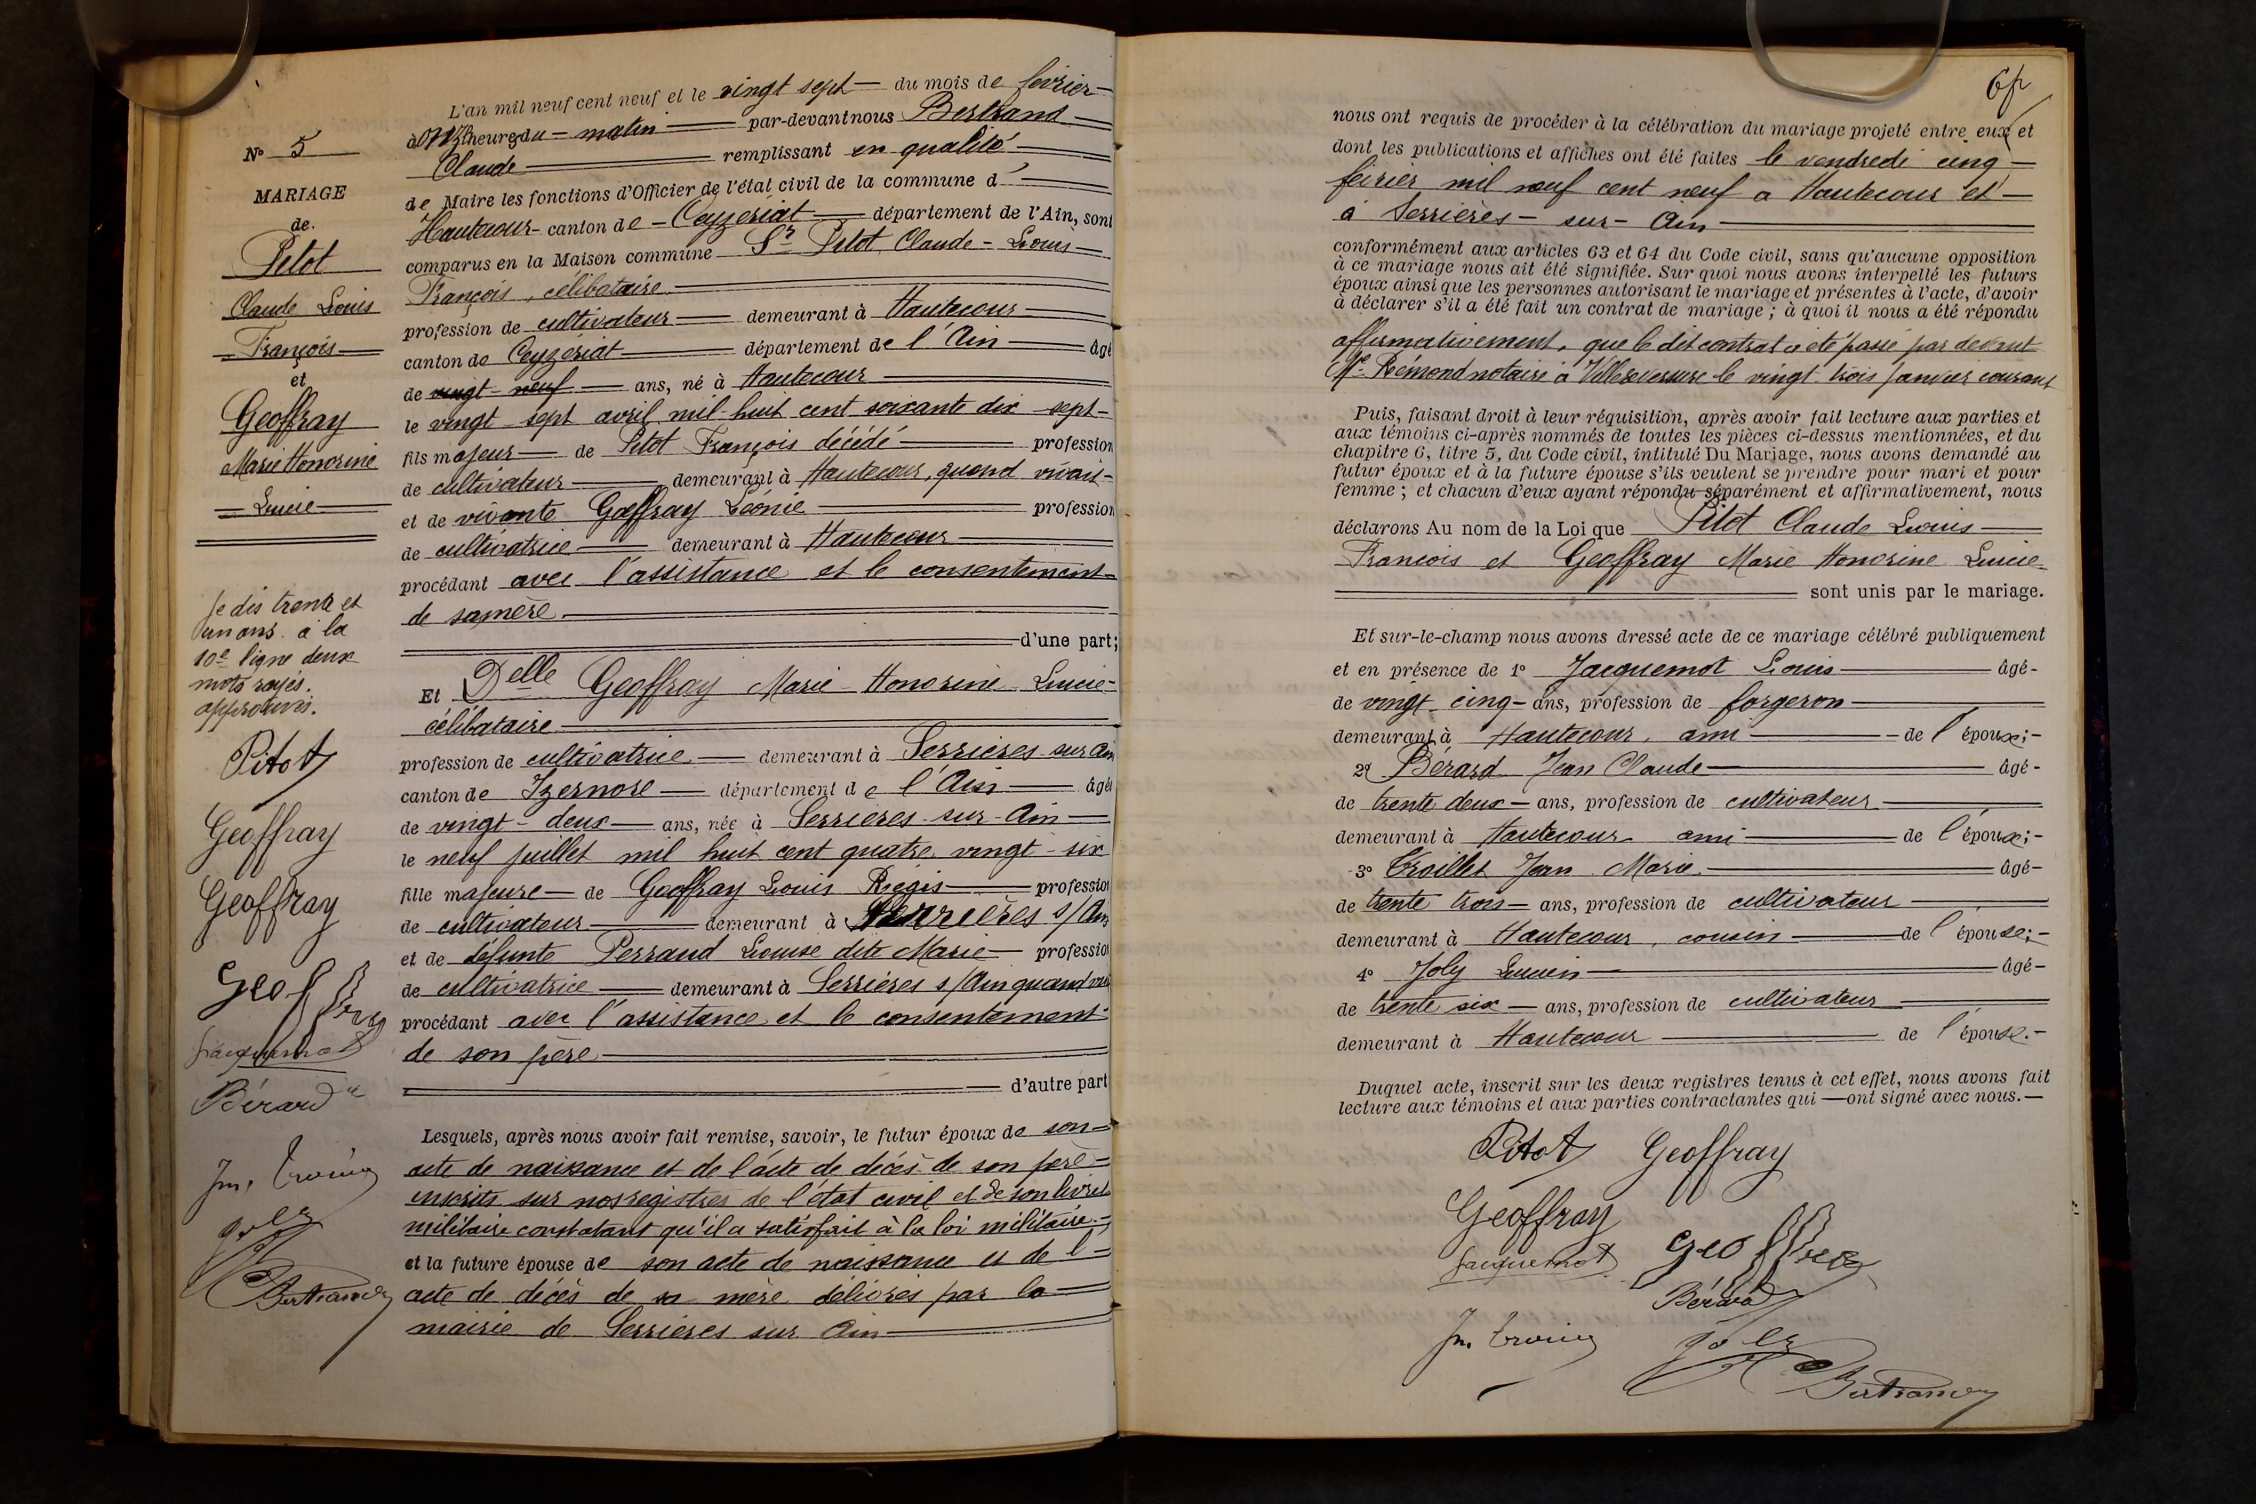 N° 5
MARIAGE
de
Pitot
Claude Louis
François
et
Geoffray
Marie Honorine
Lucie
Je dis trente et
un ans à la
10e ligne deux
mots rayés
approuvés.
Pitot
Geoffray
Geoffray
Geoffray
Jacquemot
Bérard
Jn.
Joly
Bertrand
L'an mil neuf cent neuf et le vingt sept du mois de février
à onze heures du matin par-devant nous Bertrand
Claude remplissant en qualité
de Maire les fonctions d'Officier de l'état civil de la commune d
Hautecour canton de Ceyzeriat département de l'Ain, sont
comparus en la Maison commune Sr Pitot Claude-Louis
François, célibataire
profession de cultivateur demeurant à Hautecour
canton de Ceyzeriat département de l'Ain âgé
de vingt-neuf ans, né à Hautecour
le vingt sept avril mil huit cent soixante dix-sept
fils majeur de Pitot François décédé profession
de cultivateur demeurant à Hautecour, quand vivait
et de vivante Geoffray Léonie profession
de cultivatrice demeurant à Hautecour
procédant avec l'assistance et le consentement
de sa mère
d'une part;
Et Delle Geoffray Marie-Honorine Lucie
célibataire
profession de cultivatrice demeurant à Serrières sur Ain
canton de Izernore département de l'Ain âgée
de vingt-deux ans, née à Serrières-sur-Ain
le neuf juillet mil huit cent quatre vingt-six
fille majeure de Geoffray Louis Régis profession
de cultivateur demeurant à Serrières s/Ain
et de défunte Perraud Louise dite Marie profession
de cultivatrice demeurant à Serrières s/Ain quand
procédant avec l'assistance et le consentement
de son père
d'autre part
Lesquels, après nous avoir fait remise, savoir, le futur époux de son
acte de naissance et de l'acte de décès de son père
inscrits sur nos registres de l'état civil et de son livret
militaire constatant qu'il a satisfait à la loi militaire
et la future épouse de son acte de naissance et de l'
acte de décès de sa mère délivrés par la
mairie de Serrières sur Ain
nous ont requis de procéder à la célébration du mariage projeté entre eux et
dont les publications et affiches ont été faites le vendredi cinq
février mil neuf cent neuf a Hautecour et
à Serrières-sur-Ain
conformément aux articles 63 et 64 du Code civil, sans qu'aucune opposition
à ce mariage nous ait été signifiée. Sur quoi nous avons interpellé les futurs
époux ainsi que les personnes autorisant le mariage et présentes à l'acte, d'avoir
à déclarer s'il a été fait un contrat de mariage ; à quoi il nous a été répondu
affirmativement, que le dit contrat a été passé par devant
Me Rémond notaire à Villereversure le vingt trois janvier courant
Puis, faisant droit à leur réquisition, après avoir fait lecture aux parties et
aux témoins ci-après nommés de toutes les pièces ci-dessus mentionnées, et du
chapitre 6, titre 5, du Code civil, intitulé Du Mariage, nous avons demandé au
futur époux et à la future épouse s'ils veulent se prendre pour mari et pour
femme ; et chacun d'eux ayant répondu séparément et affirmativement, nous
déclarons Au nom de la Loi que Pitot Claude Louis
François et Geoffray Marie Honorine Lucie
sont unis par le mariage.
Et sur-le-champ nous avons dressé acte de ce mariage célébré publiquement
et en présence de 1° Jacquemot Louis âgé
de vingt cinq ans, profession de forgeron
demeurant à Hautecour, ami de l'époux;
2° Bérard Jean Claude âgé
de trente deux ans, profession de cultivateur
demeurant à Hautecour ami de l'époux;
3° Jean Marie âgé
de trente trois ans, profession de cultivateur
demeurant à Hautecour, cousin de l'épouse;
4° Joly Lucien âgé
de trente six ans, profession de cultivateur
demeurant à Hautecour de l'épouse.
Duquel acte, inscrit sur les deux registres tenus à cet effet, nous avons fait
lecture aux témoins et aux parties contractantes qui ont signé avec nous.
Pitot Geoffray
Geoffray Geoffray
Jacquemot Bérard
Jn. Joly
Bertrand